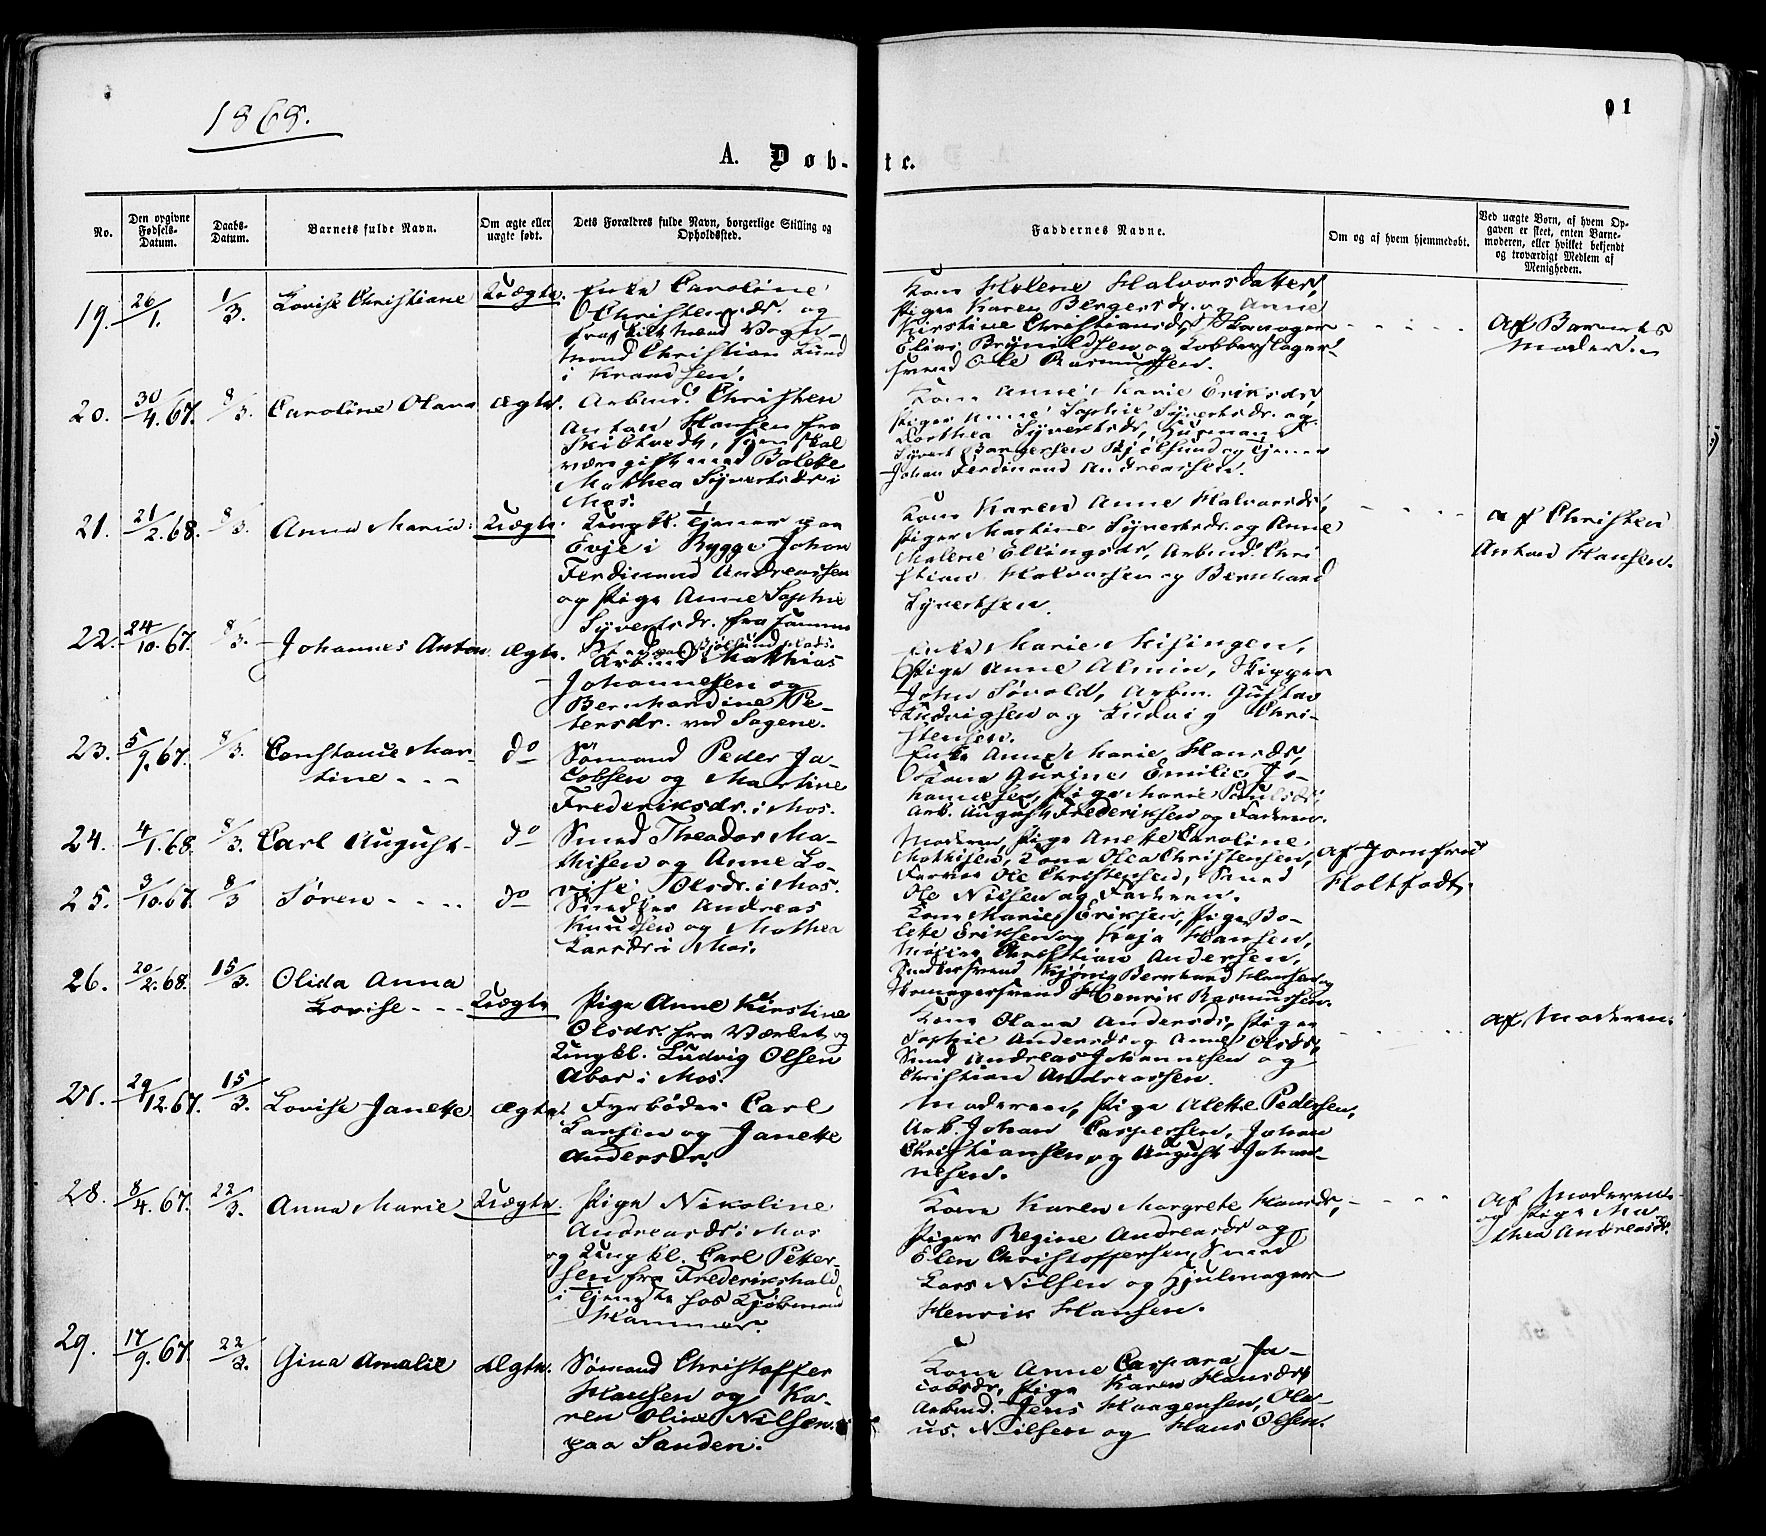 1868.
91
A. Døb-
te.
No.
Den opgivne Fødsels-Datum.
Daabs-Datum.
Barnets fulde Navn.
Om ægte eller uægte født.
Dets Forældres fulde Navn, borgerlige Stilling og Opholdssted.
Faddernes Navne.
Om og af hvem hjemmedøbt.
Ved uægte Børn, af hvem Opgaven er skeet, enten Barnemoderen, eller hvilket bekjendt og troværdigt Medlem af Menigheden.
19. 26/1. 1/3. Lovise Christiane Uægte.
Enke Caroline
Christensdr. og
fraskilt Mand
Christian Lund
i
Kone Helene Halvorsdatter,
Piger Karen Bergersdr. og Anne
Kirstine Christiansdr, Skomager
Elias Brynildsen og Kobberslager-
svend Ole Rasmussen.
Af Barnets
Moder.
20. 30/4.67. 8/3. Caroline Olava ægte.
Arbmd. Christen
Anton Hansen fra
Skibtvedt, som skal
være gift med Bolette
Mathea Syvertsdr i
Mos.
Kone Anne Marie Eriksdr,
Piger Anne Sophie Syvertsdr. og
Dorthea Syvertsdr, Husmand
Syvert Bangersen Kjølsund og Tjener
Johan Ferdinand Andreassen.
21. 21/2.68. 8/3. Anna Maria Uægte.
Ungkl. Tjener paa
Evje i Rygge Johan
Ferdinand Andreassen
og Pige Anne Sophie
Syvertsdr. fra samme
Kone Karen Anne Halvorsdr,
Piger Martine Syvertsdr. og Anne
Malene Ellingsdr, Arbmd. Chri
stian Halvorsen og Bernhard
Syvertsen.
af Christen
Anton Hansen.
22. 24/10.67. 8/3. Johannes Anton ægte.
Arbmd Mathias
Johannesen og
Bernhardine Pe-
tersdr. ved Sagene.
Enke Marie Misingen,
Pige Anne Almin, Skipper
John Sørvold, Arbm. Gustav
Ludvigsen og Ludvig Chri-
stensen.
23. 5/9.67. 8/3. Constance Mar-
tine - - - do
Sømand Peder Ja-
cobsen og Martine
Frederiksdr. i Mos.
Enke Anne Marie Hansdr,
Kone Gurine Emilie Jo-
hannesen, Pige Marie Paulsdr,
Arb. August Frederiksen og Faderen.
24. 4/1.68. 8/3. Carl August - do
Smed Theodor Ma-
thisen og Anne Lo-
vise Olsdr. i Mos.
Moderen, Pige Anette Caroline
Mathisen, Kone Olea Christensen,
Farver Ole Christensen, Smed
Ole Nilsen og Faderen.
af Jomfru
Holtfodt.
25. 3/10.67. 8/3 Søren - - - - do
Snedker Andreas
Knudsen og Mathea
Larsdr i Mos.
Kone Marie Eriksen, Pige Bo-
lette Eriksen og Kaja Hansen,
Christian Andersen,
Snedkersvend Bernhard Hansen og
Skomagersvend Henrik Rasmussen.
26. 20/2.68. 15/3. Olida Anna
Lovise - - - Uægte
Pige Anne Kirstine
Olsdr. fra Værket og
Ungkl. Ludvig Olsen
Abor i Mos.
Kone Olava Andersdr, Piger
Sophie Andersdr og Anne Olsdr,
Smed Andreas Johannesen og
Christian Andreassen.
af Moderen.
27. 29/12.67. 15/3. Lovise Janette ægte.
Fyrbøder Carl
Larsen og Janette
Andersdr.
Moderen, Pige Alette Pedersen,
Arb. Johan Caspersen, Johan
Christiansen og August Johan-
nesen.
28. 8/4.67. 22/3. Anna Marie Uægte.
Pige Nikoline
Andreasdr i Mos
og Ungkl. Carl Peter-
sen fra Frederikshald
i Tjeneste hos Kjøbmand
Hammer.
Kone Karen Margrete Hansdr,
Piger Regine Andreasdr og
Elen Christoffersen, Smed
Lars Nilsen og Hjulmager
Henrik Hansen.
Af Moderen
og Pige Ma
thea Andreasdr.
29. 17/9.67. 22/3. Gina Amalie Ægte.
Sømand Christoffer
Hansen og Ka-
ren Oline Nilsen
paa Sanden.
Kone Anne Caspara Ja-
cobsdr, Pige Karen Hansdr,
Arbmd. Jens Haagensen, Ola-
us Nilsen og Hans Olsen.